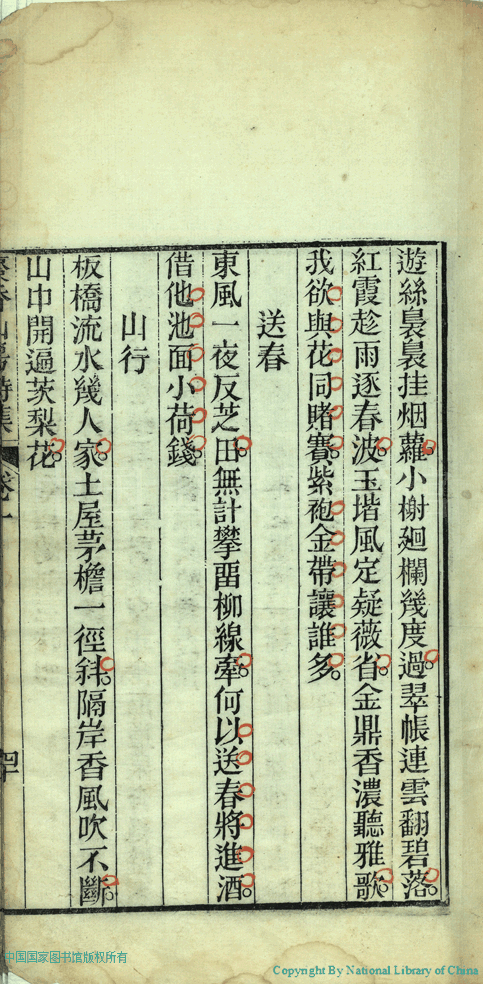 遊絲裊裊挂烟蘿小榭廻欄幾度過翠帳連雲翻碧落
紅霞趁雨逐春波玉堦風定疑薇省金鼎香濃聽雅歌
我欲與花同賭賽紫袍金帶讓誰多
送春
東風一夜反芝田無計攀畱柳線牽何以送春將進酒
借他池面小荷錢
山行
板橋流水幾人家土屋茅檐一徑斜隔岸香風吹不斷
山中開遍茨梨花
山房詩集 卷一
四十
中国国家图书馆版权所有
Copyright By National Library of China